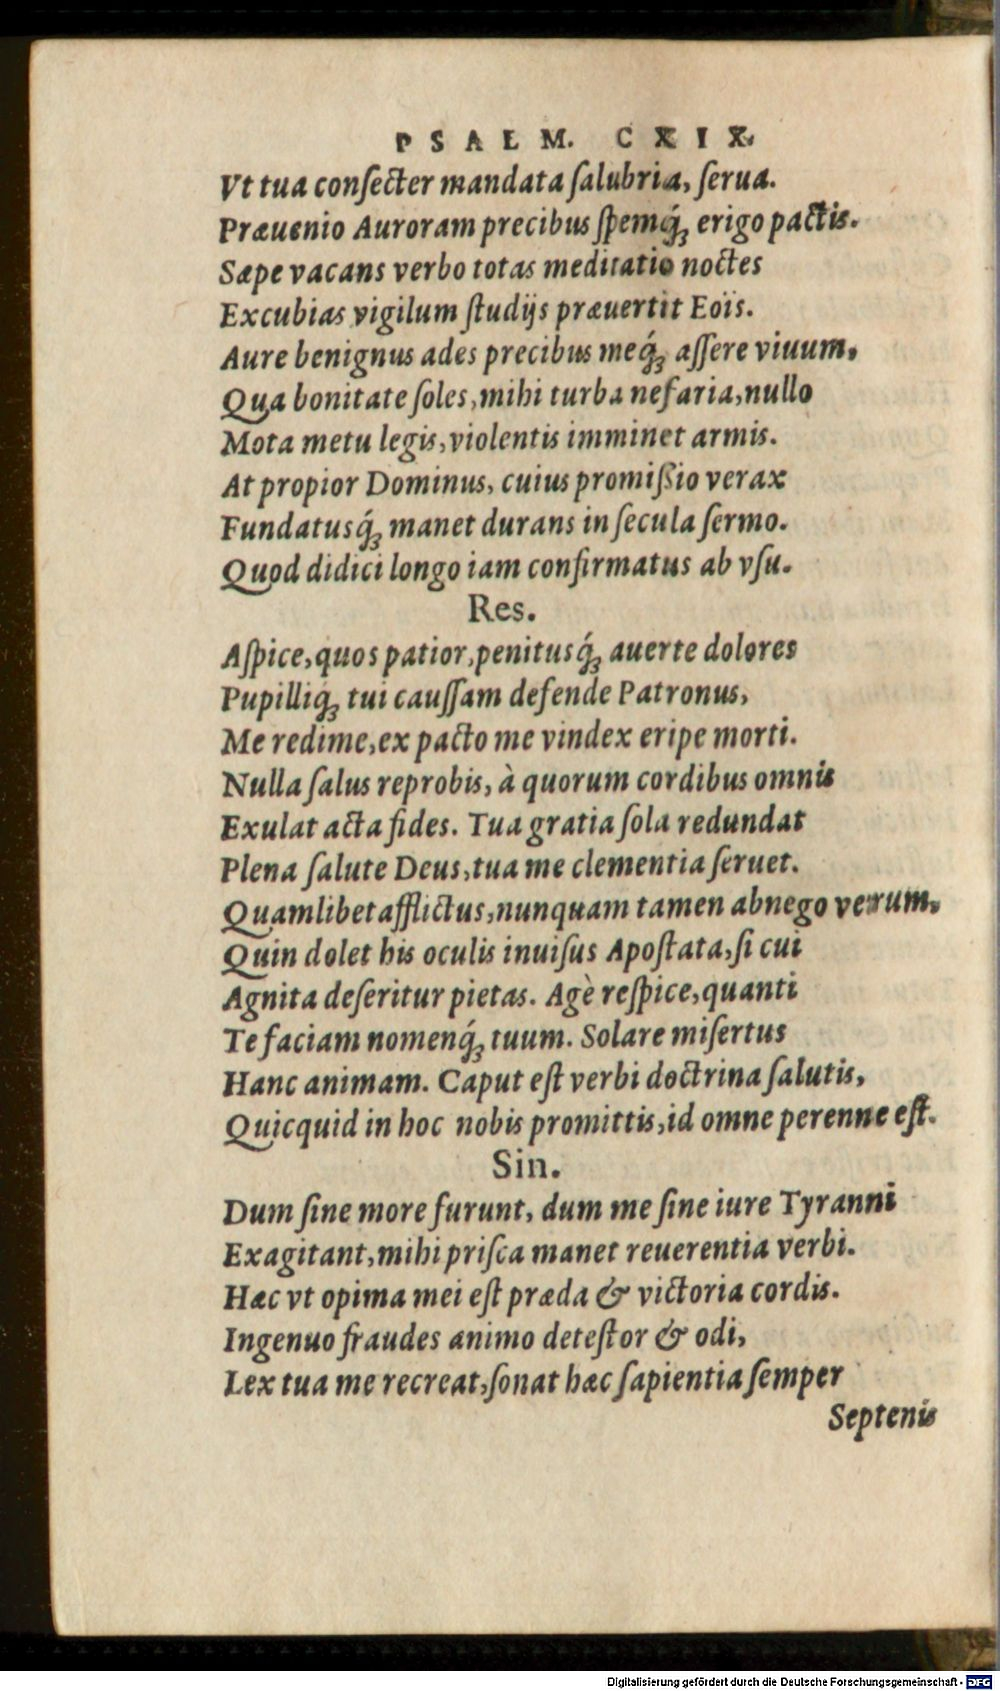 PSALM. CXIX.
Vt tua conſecter mandata ſalubria, ſerua.
Præuenio Auroram precibus ſpemq́ꝫ erigo pactis.
Sæpe vacans verbo totas meditatio noctes
Excubias vigilum ſtudijs præuertit Eoïs.
Aure benignus ades precibus meq́ꝫ aſſere viuum,
Qua bonitate ſoles, mihi turba nefaria, nullo
Mota metu legis, violentis imminet armis.
At propior Dominus, cuius promißio verax
Fundatusq́ꝫ manet durans in ſecula ſermo.
Quod didici longo iam confirmatus ab vſu.
Res.
Aſpice, quos patior, penitusq́ꝫ auerte dolores
Pupilliq́ꝫ tui cauſſam defende Patronus,
Me redime, ex pacto me vindex eripe morti.
Nulla ſalus reprobis, à quorum cordibus omnis
Exulat acta fides. Tua gratia ſola redundat
Plena ſalute Deus, tua me clementia ſeruet.
Quamlibet afflictus, nunquam tamen abnego verum,
Quin dolet his oculis inuiſus Apoſtata, ſi cui
Agnita deſeritur pietas. Agè reſpice, quanti
Te faciam nomenq́ꝫ tuum. Solare miſertus
Hanc animam. Caput eſt verbi doctrina ſalutis,
Quicquid in hoc nobis promittis, id omne perenne eſt.
Sin.
Dum ſine more furunt, dum me ſine iure Tyranni
Exagitant, mihi priſca manet reuerentia verbi.
Hæc vt opima mei eſt præda & victoria cordis.
Ingenuo fraudes animo deteſtor & odi,
Lex tua me recreat, ſonat hæc ſapientia ſemper
Septenis
Digitalisierung gefördert durch die Deutsche Forschungsgemeinschaft - DFG